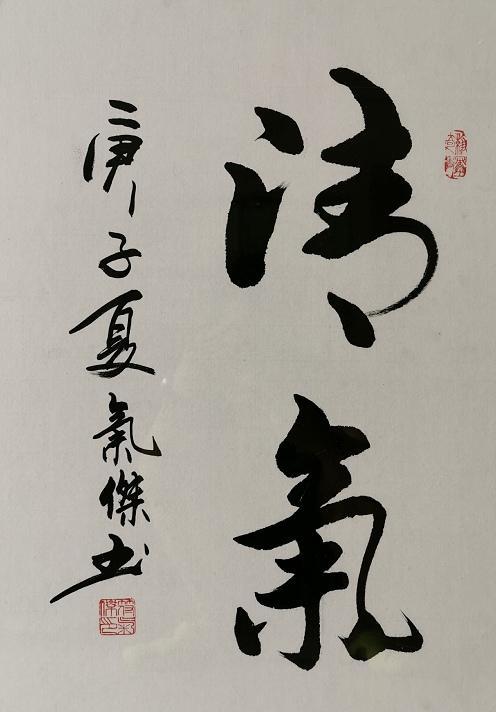 清氣
庚子夏氣傑书